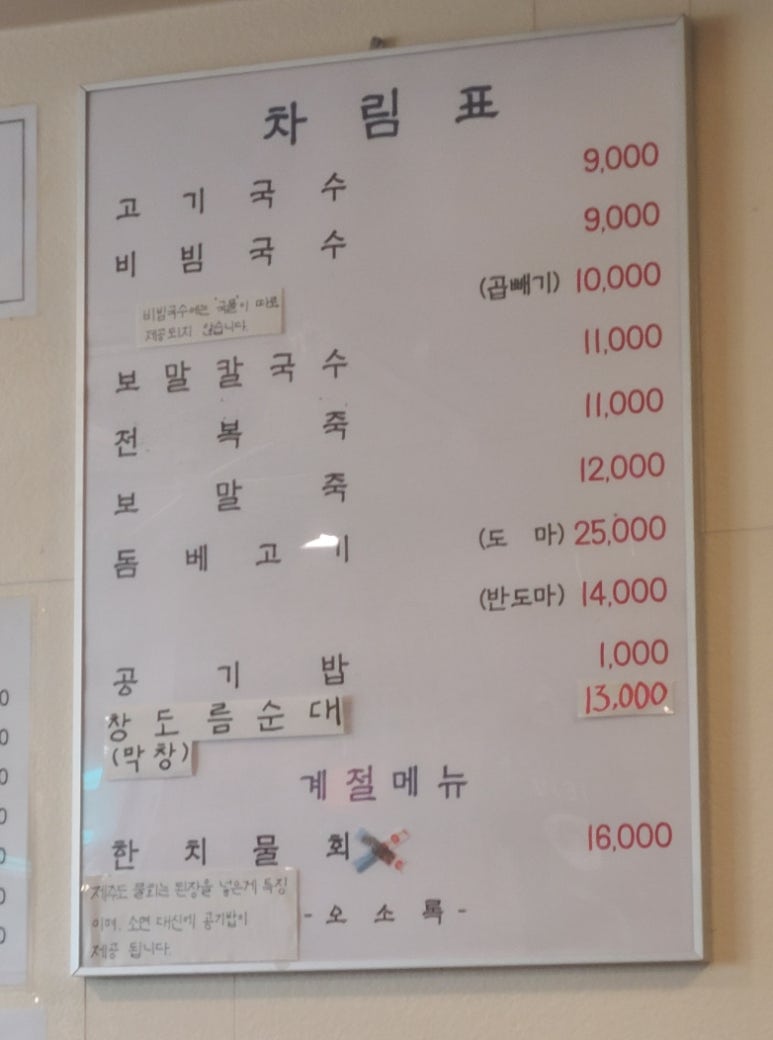 차림표
고기국수 9,000
비빔국수 9,000
(곱빼기) 10,000
비빔국수에는 '국물'이 따로
제공되지 않습니다.
보말칼국수 11,000
전복죽 11,000
보말죽 12,000
돔베고기 (도 마) 25,000
(반도마) 14,000
공기밥 1,000
창도름순대 13,000
(막창)
계절메뉴
한치물회 16,000
제주도 물회는 된장을 넣은게 특징
이며, 소면 대신에 공기밥이
제공 됩니다.
- 오소록 -
0
0
0
0
0
0
0